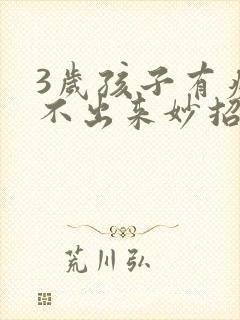 3歲孩子有
不出来妙招
荒川弘